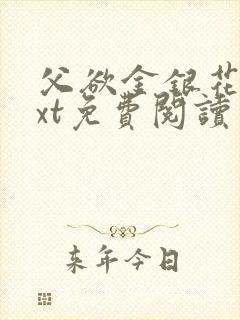 父欲金银花
xt免費閱讀
来年今日